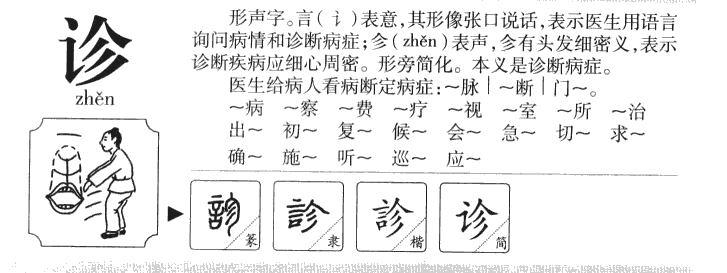 诊
zhěn
形声字。言(讠)表意,其形像张口说话,表示医生用语言
询问病情和诊断病症;㐱(zhěn)表声,㐱有头发细密义,表示
诊断疾病应细心周密。形旁简化。本义是诊断病症。
医生给病人看病断定病症:～脉｜～断｜门～。
～病 ～察 ～费 ～疗 ～视 ～室 ～所 ～治
出～ 初～ 复～ 候～ 会～ 急～ 切～ 求～
确～ 施～ 听～ 巡～ 应～
診 篆 診 隶 診 楷 诊 简